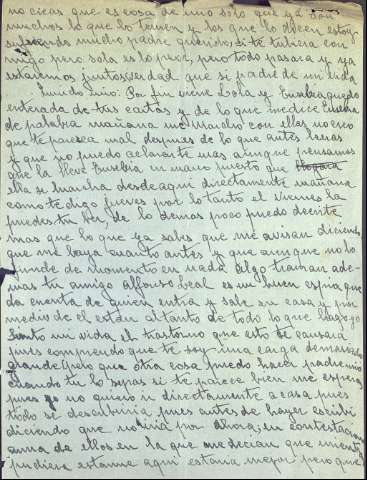 no creas que es cosa de uno solo que ya son
muchos lo que lo temen y los que lo dicen estoy
sufriendo mucho padre querido, si te tubiera con
migo pero sola es lo peor, pero todo pasara y ya
estaremos juntos verdad que si padre de mi vida
Querido mio: Por fin viene Lola y Eusebia quedo
enterada de tus cartas y de lo que me dice
de palabra mañana me marcho con ellas no creo
que te paresca mal despues de lo que antes lerias
y que no puedo aclararte mas aunque pensamos
que la lleve Eusebia en mano puesto que
ella se marcha desde aqui directamente mañana
como te digo jueves por lo tanto el viernes la
puedes tu ver, de lo demas poco puedo decirte
mas que lo que ya sabes que me avisan diciendo
que me baya cuanto antes y que aunque no lo
funde de momento en nada algo traman ade-
mas tu amigo Alfonso Leal es un buen espia que
da cuenta de quien entra y sale en su casa y por
medio de el estan al tanto de todo lo que hago yo
Siento mi vida el trastorno que esto te causara
pues comprendo que te soy una carga demasiado
grande pero que otra cosa puedo hacer padre mio
cuando tu lo sepas si te parece bien me esperas
pues yo no quiero ir directamente a casa pues
todo se descubriria pues antes de hayer escribi
diciendo que no iria por ahora, en contestacion
a una de ellos en la que me decian que mientras
pudiera estarme aqui estaria mejor pero que